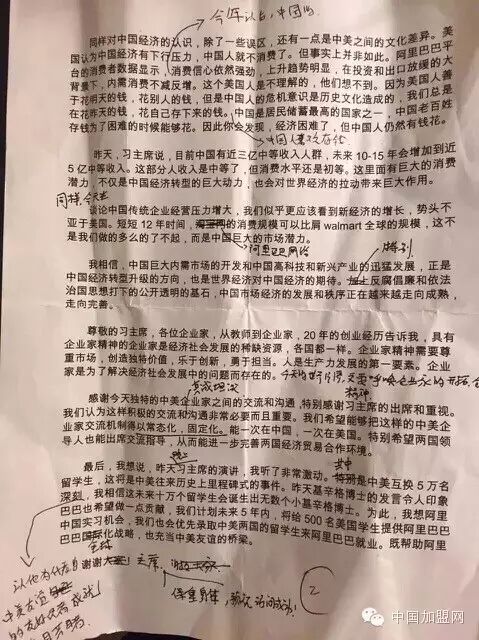 今年以台，中国的
同样对中国经济的认识，除了一些误区，还有一点是中美之间的文化差异。美
国认为中国经济有下行压力，中国人就不消费了。但事实上并非如此。阿里巴巴平
台的消费者数据显示，消费信心依然强劲，上升趋势明显，在投资和出口放缓的大
背景下，内需消费不减反增。这个美国人是不理解的，他们想不到。因为美国人善
于花明天的钱，花别人的钱，但是中国人的危机意识是历史文化造成的，我们总是
在花昨天的钱，花自己存下来的钱。中国是居民储蓄最高的国家之一，中国老百姓
存钱为了困难的时候能够花。因此你会发现，经济困难了，但中国人仍然有钱花。
中国人喜欢存钱
昨天，习主席说，目前中国有近三亿中等收入人群，未来 10-15 年会增加到近
5 亿中等收入。这部分人收入是中等了，但消费水平还是初等。这里面有巨大的消费
潜力，不仅是中国经济转型的巨大动力，也会对世界经济的拉动带来巨大作用。
同样，今天
谈论中国传统企业经营压力增大，我们似乎更应该看到新经济的增长，势头不
亚于美国。短短 12 年时间，淘宝网的消费规模可以比肩 walmart 全球的规模，这不
是我们做的多么的了不起，而是中国巨大的市场潜力。
阿里巴巴网络
特别
我相信，中国巨大内需市场的开发和中国高科技和新兴产业的迅猛发展，正是
中国经济转型升级的方向，也是世界经济对中国经济的期待。加上反腐倡廉和依法
治国思想打下的公开透明的基石，中国市场经济的发展和秩序正在越来越走向成熟，
走向完善。
尊敬的习主席，各位企业家，从教师到企业家，20 年的创业经历告诉我，具有
企业家精神的企业家是经济社会发展的稀缺资源，各国都一样。企业家精神需要尊
重市场，创造独特价值，乐于创新，勇于担当。人是生产力发展的第一要素。企业
家是为了解决经济社会发展中的问题而存在的。
精神
感谢今天独特的中美企业家之间的交流和沟通，特别感谢习主席的出席和重视。
我们认为这样积极的交流和沟通非常必要而且重要。我们希望能够把这样的中美企
业家交流机制得以常态化，固定化。能一次在中国，一次在美国。特别希望两国领
导人也能出席交流指导，从而能进一步完善两国经济贸易合作环境。
最后，我想说，昨天习主席的演讲，我听了非常激动。特别是中美互换 5 万名
留学生，这将是中美往来历史上里程碑式的事件。昨天基辛格博士的发言令人印象
深刻，我相信这未来十万个留学生会诞生出无数个小基辛格博士。为此，我想阿里
巴巴也希望做一点贡献，我们计划未来 5 年内，将给 500 名美国学生提供阿里巴巴
中国实习机会，我们也会优先录取中美两国的留学生来阿里巴巴就业。既帮助阿里
巴巴国际化战略，也充当中美友谊的桥梁。
全球
谢谢 主席
保重身体
2
中国加盟网